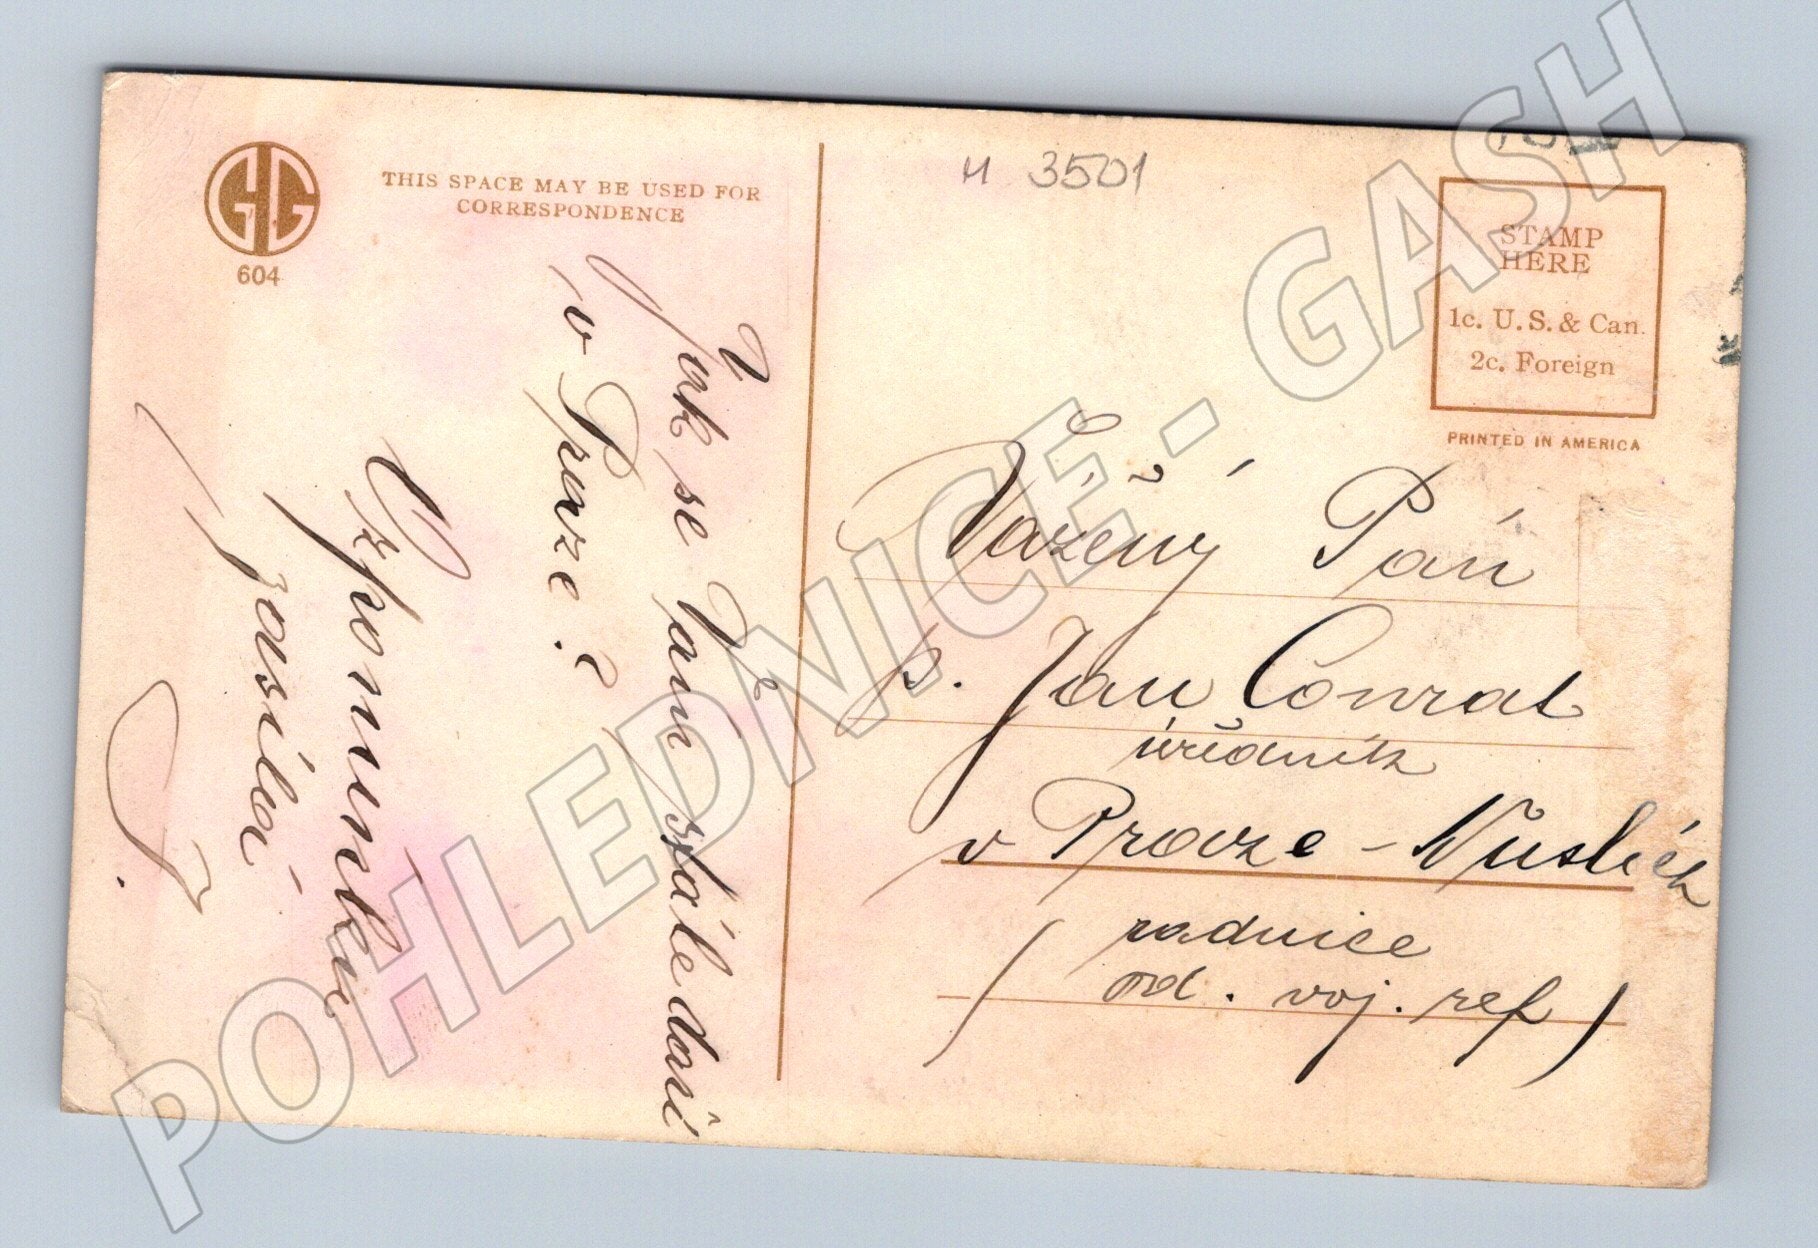 GG
604
THIS SPACE MAY BE USED FOR
CORRESPONDENCE
Jak se Vám stále daří
v Praze?
Vzpomínku
zasílá
J.
H 3501
STAMP
HERE
1c. U.S. & Can.
2c. Foreign
PRINTED IN AMERICA
Vážený Pán
p. Jan Conrat
úředník
v Praze - Nuslích
(radnice
od. voj. ref)
POHLEDNICE - GASH